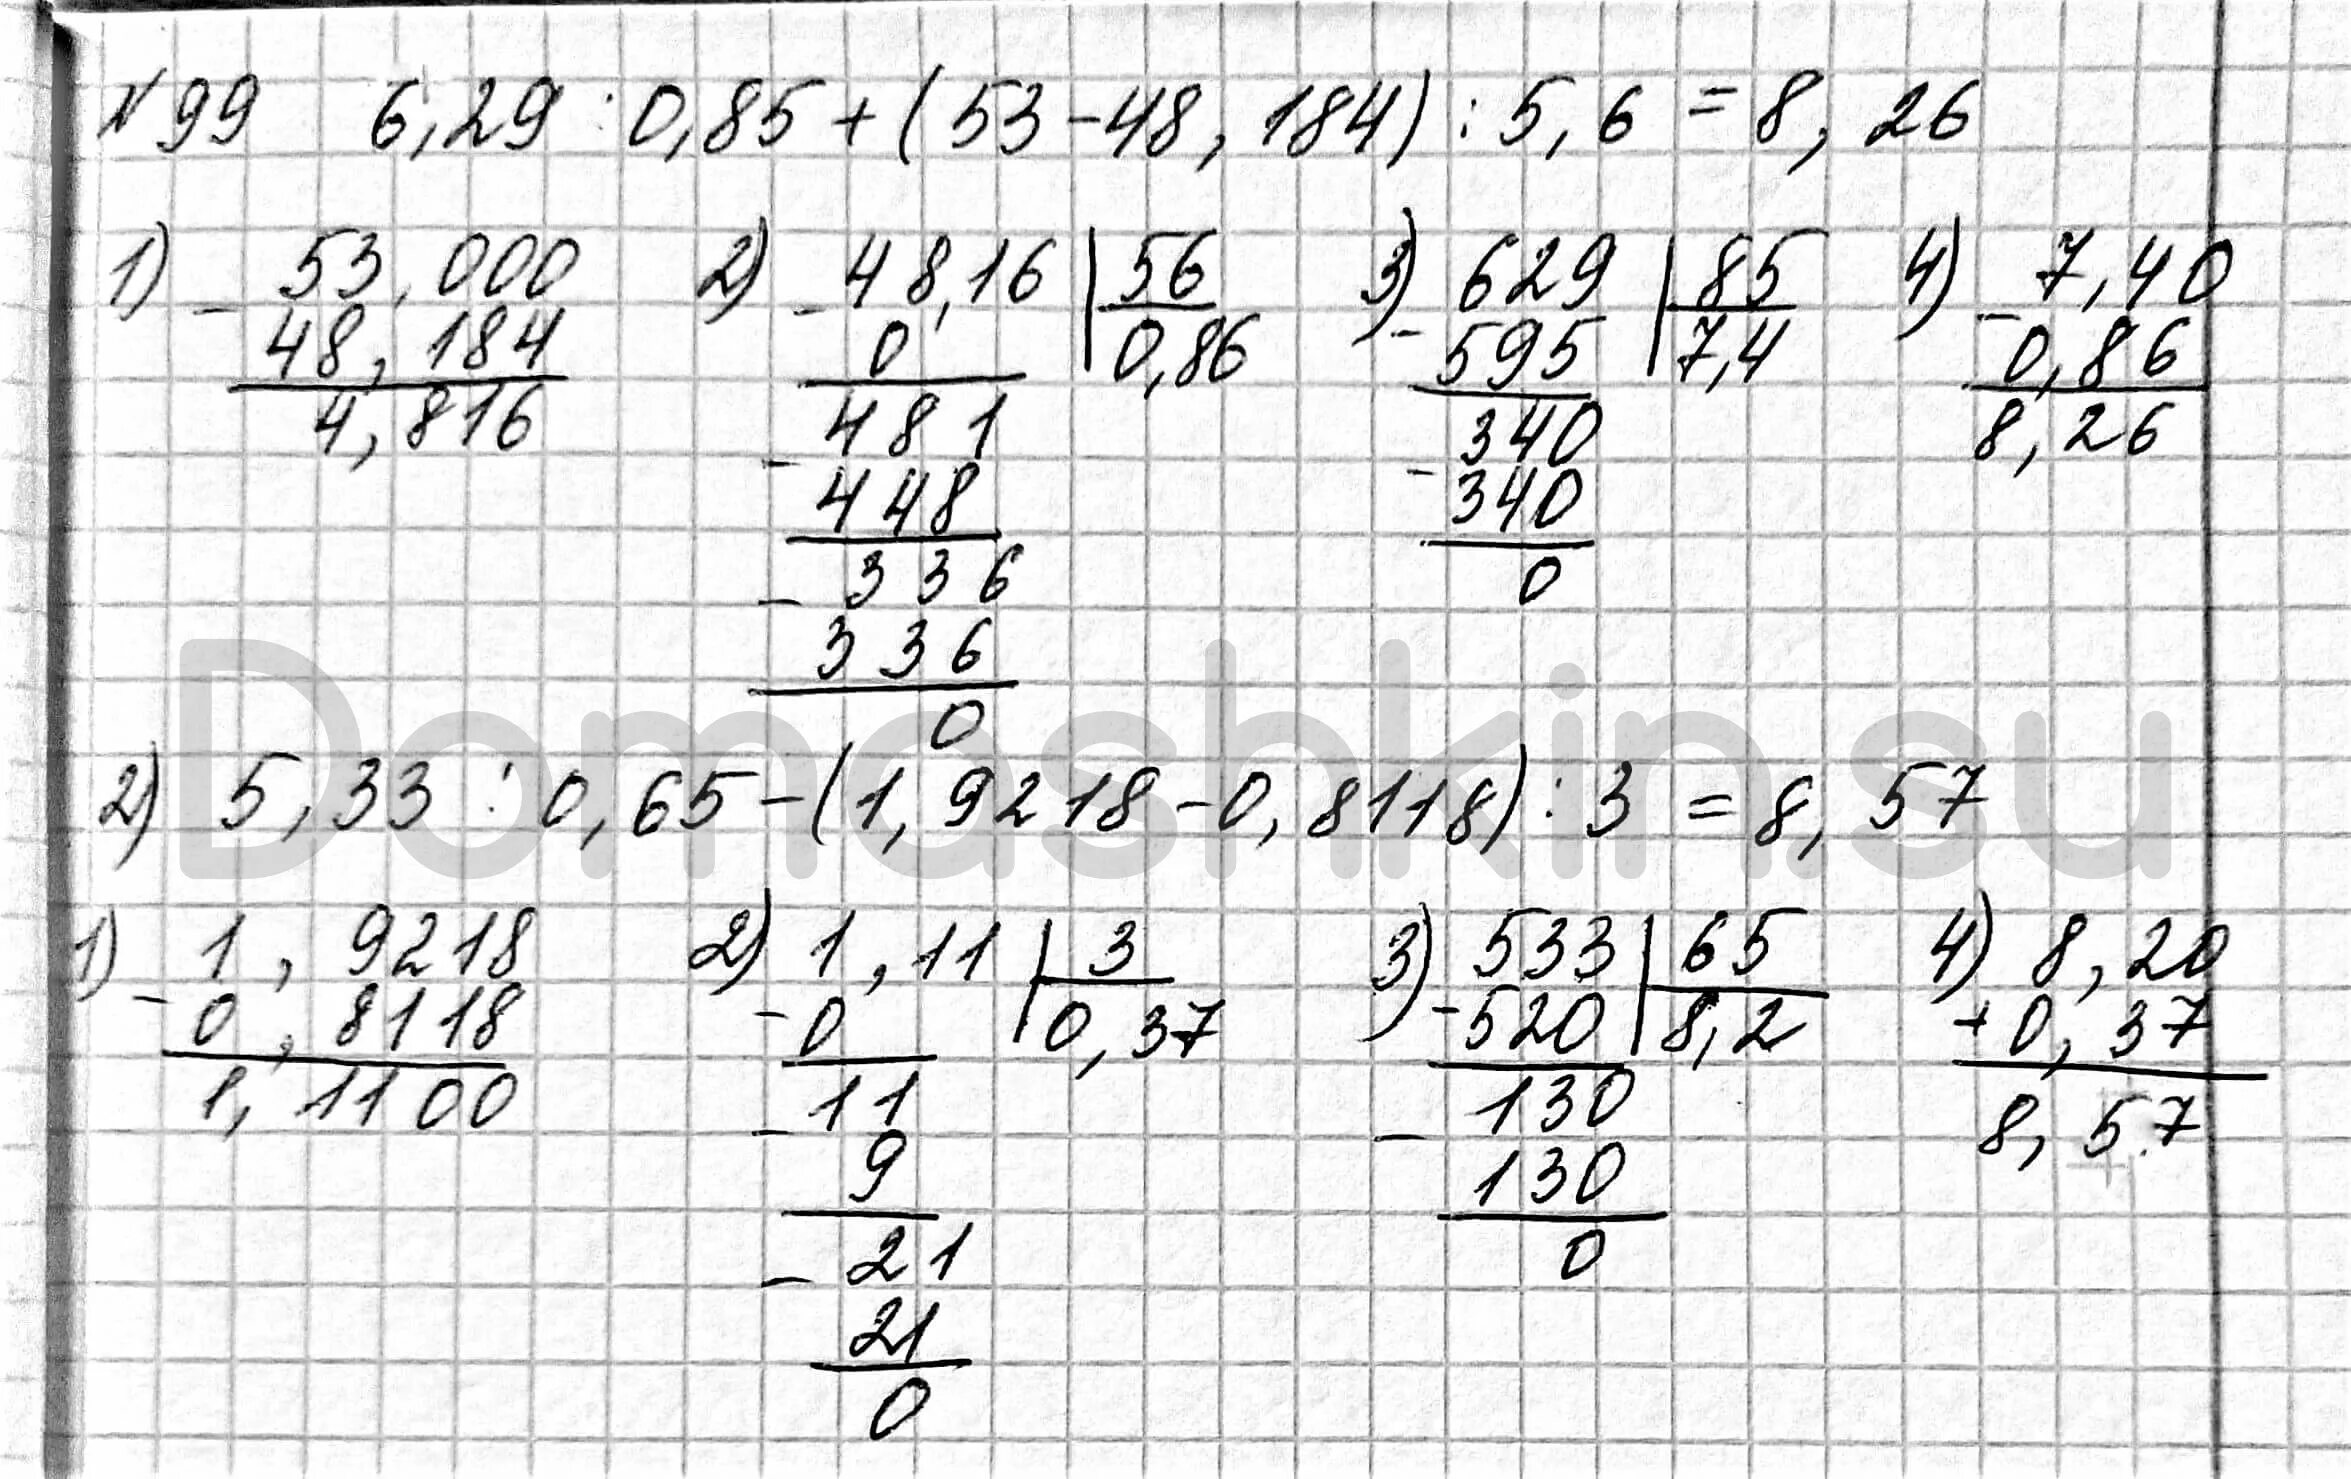 №99 6,29 : 0,85 + (53 - 48,184) : 5,6 = 8,26
1) - 53,000
48,184
4,816
2) - 48,16 | 56
0 | 0,86
- 481
448
- 336
336
0
3) - 629 | 85
595 | 7,4
- 340
340
0
4) - 7,40
0,86
8,26
2) 5,33 : 0,65 - (1,9218 - 0,8118) : 3 = 8,57
1) - 1,9218
0,8118
1,1100
2) - 1,11 | 3
0 | 0,37
- 11
9
- 21
21
0
3) - 533 | 65
520 | 8,2
- 130
130
0
4) + 8,20
0,37
8,57
Domashkin.su